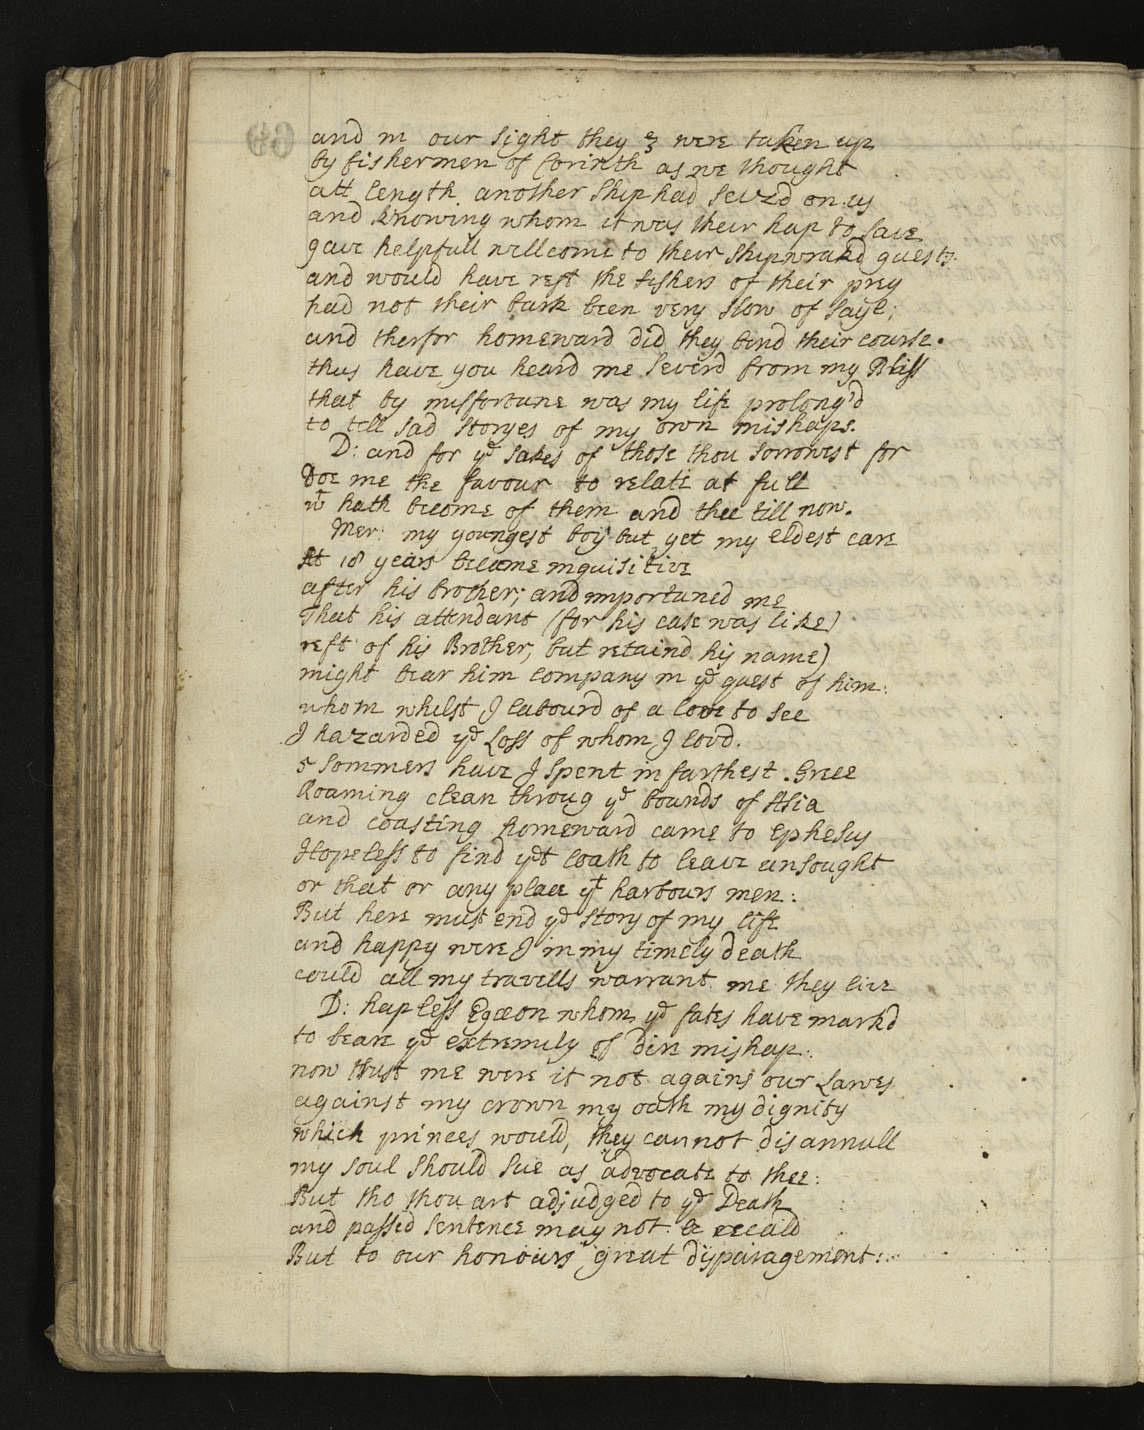 and in our sight they 3 were taken up
by fishermen of Corinth as we thought
att length another ship had seiz'd on us
and knowing whom it was their hap to save
gave helpfull wellcome to their shipwrakd guests
and would have reft the fishers of their prey
had not their bark been very slow of sayle;
and therfor homeward did they bend their course.
thus have you heard me severd from my Bliss
that by misfortune was my life prolong'd
to tell sad storyes of my own mishaps.
D: and for ye sakes of those thou sorrowest for
Doe me the favour to relate at full
wt hath become of them and thee till now.
Mer: my youngest boy but yet my eldest care
At 18 years became inquisitive
after his brother; and importuned me
That his attendant (for his case was like)
reft of his Brother, but retaind his name)
might bear him company in ye quest of him:
whom whilst I labourd of a love to see
I hazarded ye Loss of whom I lovd.
5 sommers have I spent in farthest Grece
Roaming clean throug ye bounds of Asia
and coasting homeward came to Ephesus
Hopeless to find yet loath to leave unsought
or that or any place yt harbours men:
But here must end ye story of my life
and happy were I in my timely death
could all my travells warrant me they live
D: hapless Egæon whom ye fates have markd
to beare ye extremity of dire mishap:
now trust me were it not agains our Lawes
against my crown my oath my dignity
which princes would, they cannot disannull
my soul should sue as advocate to thee:
But tho thou art adjudged to ye Death
and passed sentence may not be recald
But to our honours great disparagement: